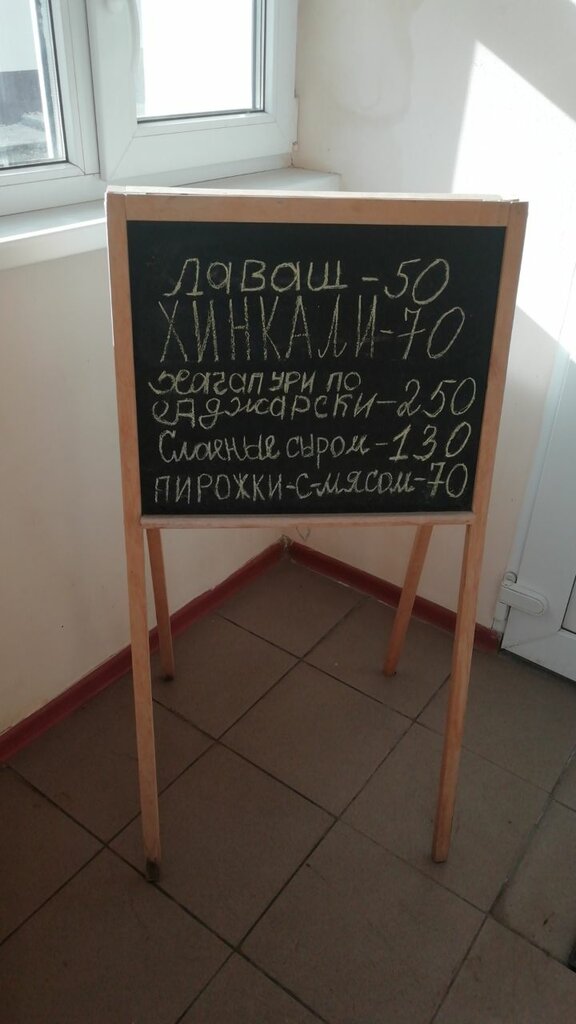 Лаваш - 50
ХИНКАЛИ-70
Хачапури по
Аджарски-250
Слоеные сыром-130
ПИРОЖКИ-С-МЯСОМ-70